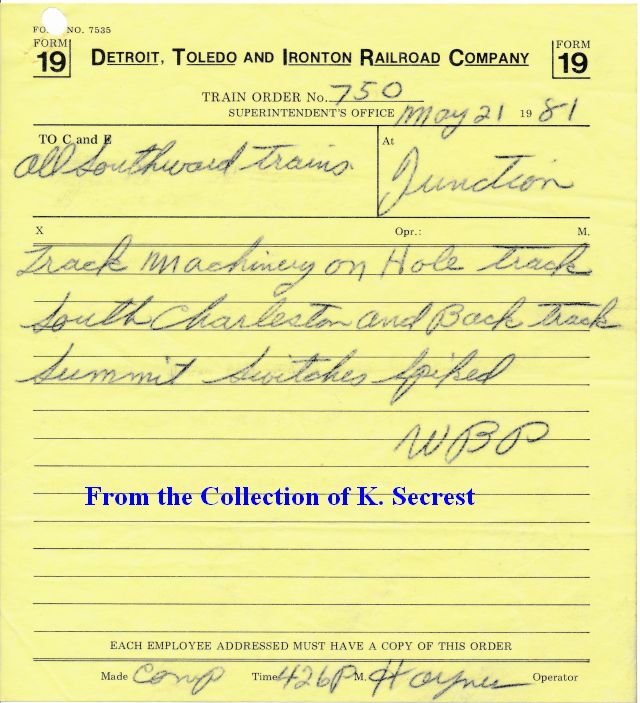 FO NO. 7535
FORM 19
DETROIT, TOLEDO AND IRONTON RAILROAD COMPANY
FORM 19
TRAIN ORDER No. 750
SUPERINTENDENT'S OFFICE May 21 19 81
TO C and E
At
All Southward trains
Junction
X Opr.: M.
Track Machinery on Hole track
South Charleston and Back track
Summit Switches Spiked
WBP
From the Collection of K. Secrest
EACH EMPLOYEE ADDRESSED MUST HAVE A COPY OF THIS ORDER
Made Comp Time 426P M. Haynes Operator